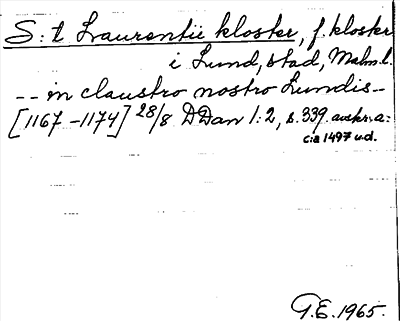 S:t Laurentii kloster, f. kloster
i Lund, stad, Malm.l.
-- in claustro nostro Lundis--
[1167-1174] 28/8 DDan 1:2, s.339. avskr. a:
c:a 1497 u.d.
G.E. 1965.